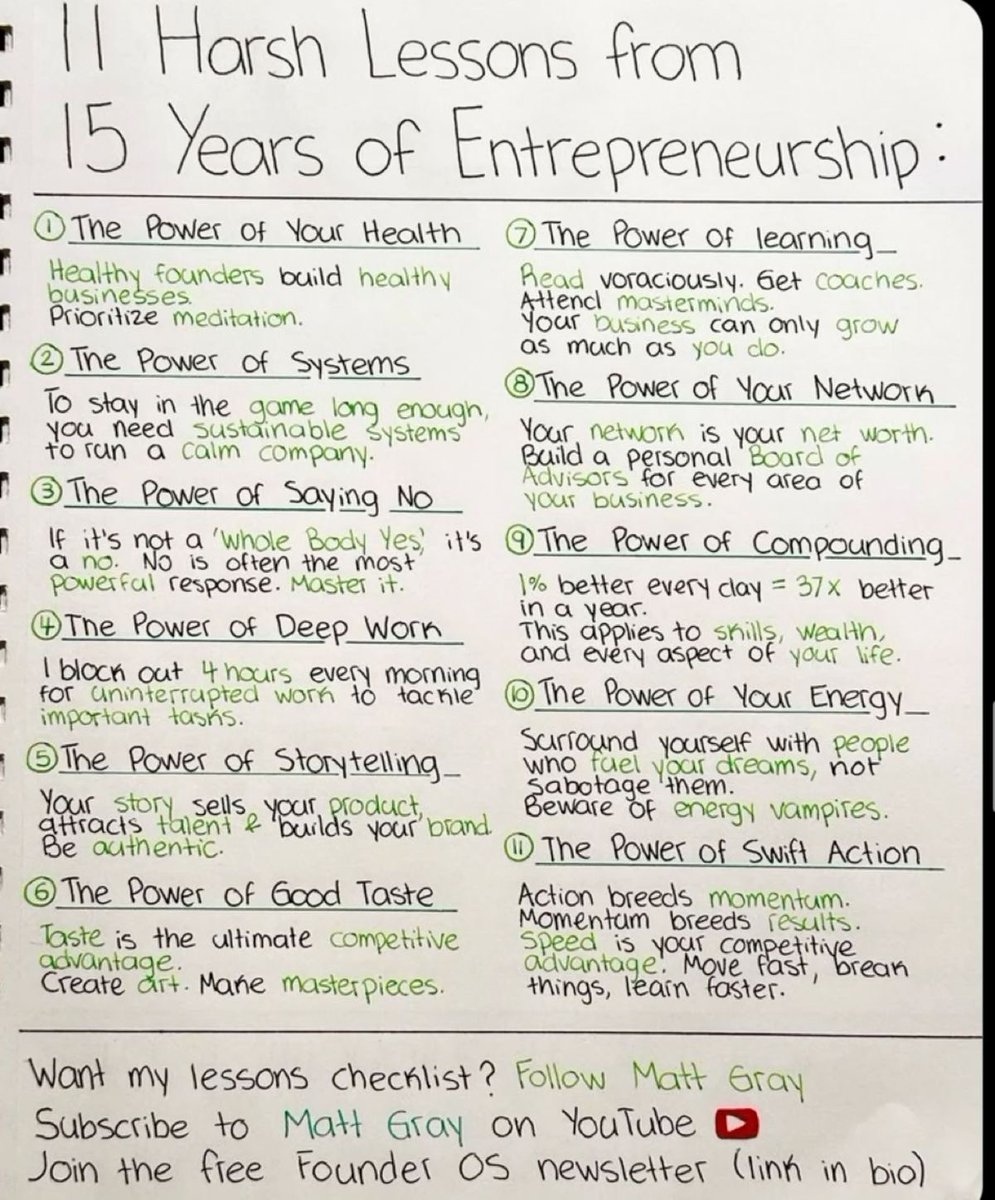 11 Harsh Lessons from
15 Years of Entrepreneurship:
① The Power of Your Health
Healthy founders build healthy
businesses.
Prioritize meditation.
② The Power of Systems
To stay in the game long enough,
you need sustainable systems
to run a calm company.
③ The Power of Saying No
If it's not a 'Whole Body Yes', it's
a no. No is often the most
powerful response. Master it.
④ The Power of Deep Work
I block out 4 hours every morning
for uninterrupted work to tackle
important tasks.
⑤ The Power of Storytelling
Your story sells your product,
attracts talent & builds your brand.
Be authentic.
⑥ The Power of Good Taste
Taste is the ultimate competitive
advantage.
Create art. Make masterpieces.
⑦ The Power of learning
Read voraciously. Get coaches.
Attend masterminds.
Your business can only grow
as much as you do.
⑧ The Power of Your Network
Your network is your net worth.
Build a personal Board of
Advisors for every area of
your business.
⑨ The Power of Compounding
1% better every day = 37x better
in a year.
This applies to skills, wealth,
and every aspect of your life.
⑩ The Power of Your Energy
Surround yourself with people
who fuel your dreams, not
sabotage them.
Beware of energy vampires.
⑪ The Power of Swift Action
Action breeds momentum.
Momentum breeds results.
Speed is your competitive
advantage. Move fast, break
things, learn faster.
Want my lessons checklist? Follow Matt Gray
Subscribe to Matt Gray on YouTube
Join the free Founder OS newsletter (link in bio)